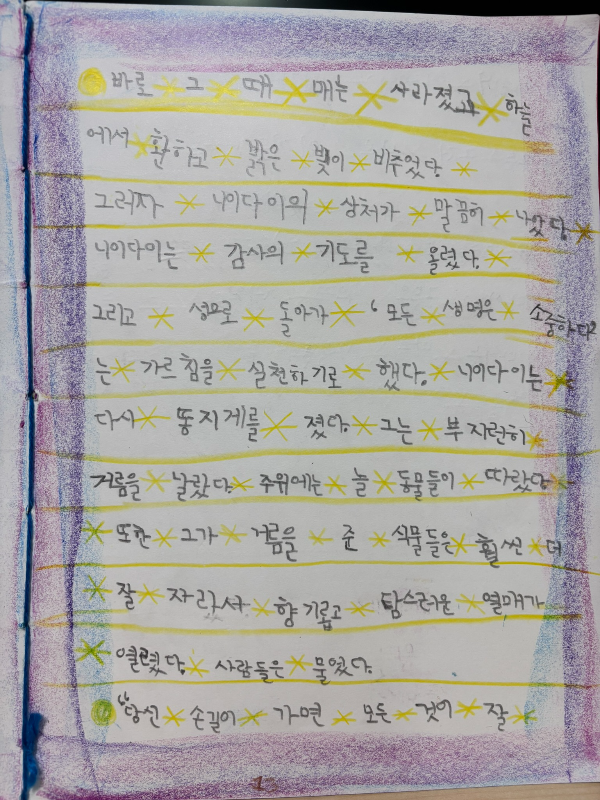 바로 그 때 매는 사라졌고 하늘
에서 환하고 밝은 빛이 비추었다.
그러자 니이다이의 상처가 말끔히 나았다.
니이다이는 감사의 기도를 올렸다.
그리고 성으로 돌아가 '모든 생명은 소중하다'
는 가르침을 실천하기로 했다. 니이다이는
다시 똥지게를 졌다. 그는 부지런히
거름을 날랐다. 주위에는 늘 동물들이 따랐다.
또한 그가 거름을 준 식물들은 훨씬 더
잘 자라서 향기롭고 탐스러운 열매가
열렸다. 사람들은 물었다.
"당신 손길이 가면 모든 것이 잘